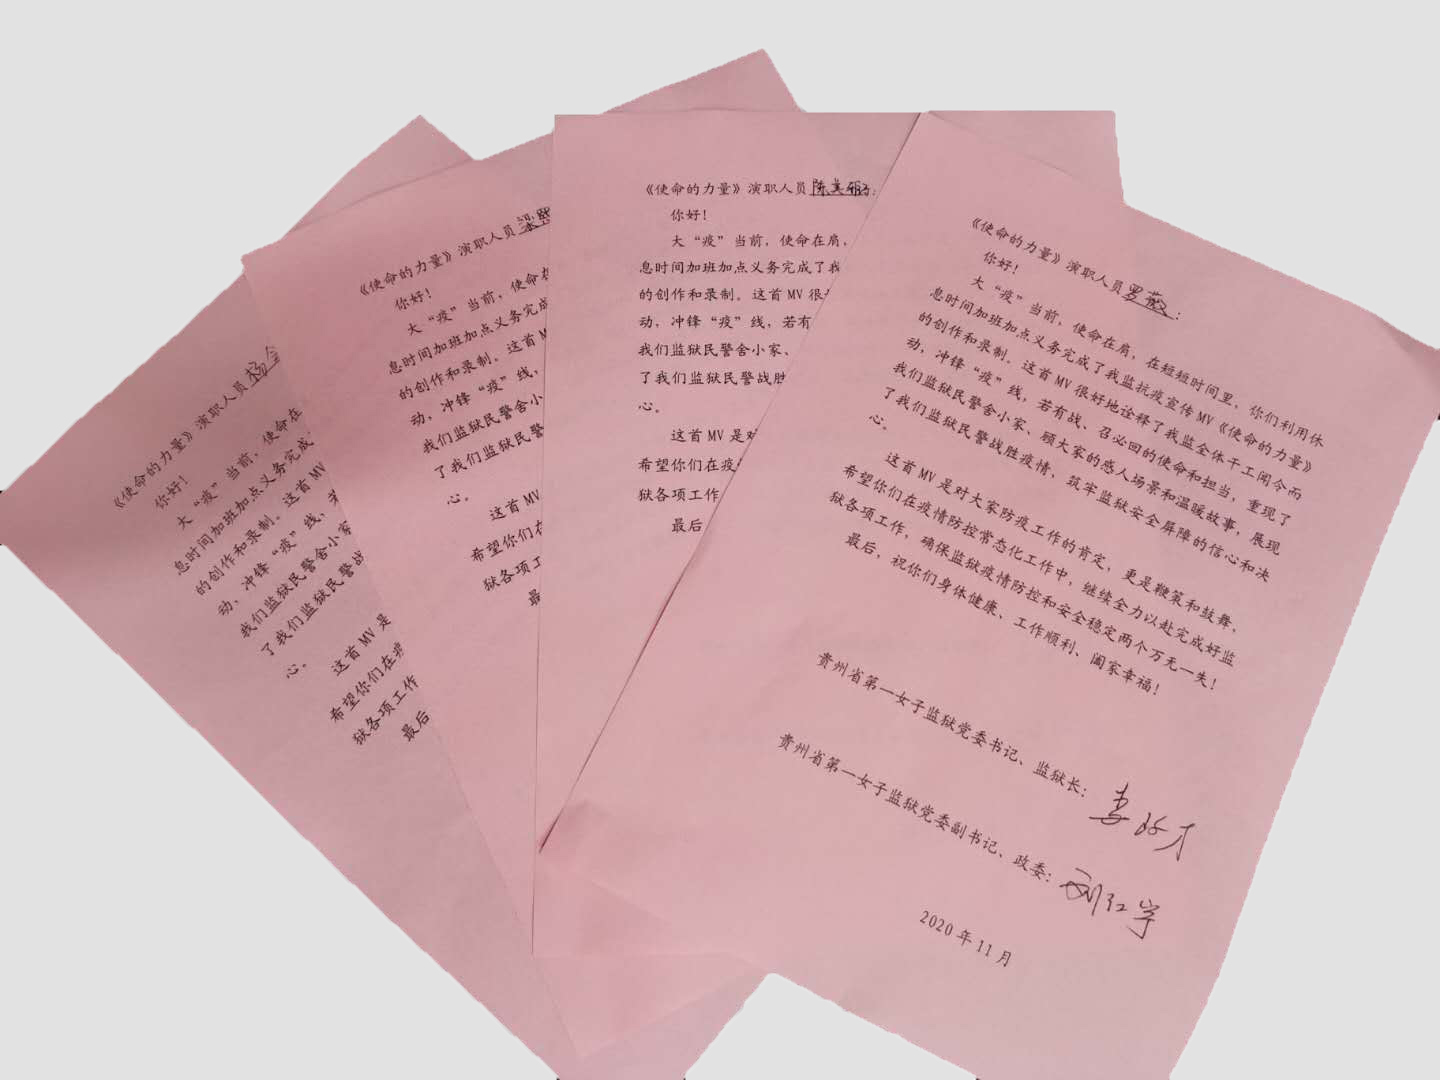 《使命的力量》演职人员杨
你好！
大“疫”当前，使命在
息时间加班加点义务完成
的创作和录制。这首MV
动，冲锋“疫”线，若
我们监狱民警舍小家
了我们监狱民警战
心。
这首MV是
希望你们在疫
狱各项工作
最后
《使命的力量》演职人员梁
你好！
大“疫”当前，使命在
息时间加班加点义务完成
的创作和录制。这首M
动，冲锋“疫”线，
我们监狱民警舍小
了我们监狱民警
心。
这首MV
希望你们在
狱各项工
最
《使命的力量》演职人员陈美丽：
你好！
大“疫”当前，使命在肩，
息时间加班加点义务完成了我
的创作和录制。这首MV很
动，冲锋“疫”线，若有
我们监狱民警舍小家、
了我们监狱民警战胜
心。
这首MV是对
希望你们在疫
狱各项工作
最后
《使命的力量》演职人员罗薇：
你好！
大“疫”当前，使命在肩，在短短时间里，你们利用休
息时间加班加点义务完成了我监抗疫宣传MV《使命的力量》
的创作和录制。这首MV很好地诠释了我监全体干工闻令而
动，冲锋“疫”线，若有战、召必回的使命和担当，重现了
我们监狱民警舍小家、顾大家的感人场景和温暖故事，展现
了我们监狱民警战胜疫情，筑牢监狱安全屏障的信心和决
心。
这首MV是对大家防疫工作的肯定，更是鞭策和鼓舞，
希望你们在疫情防控常态化工作中，继续全力以赴完成好监
狱各项工作，确保监狱疫情防控和安全稳定两个万无一失！
最后，祝你们身体健康、工作顺利、阖家幸福！
贵州省第一女子监狱党委书记、监狱长：
贵州省第一女子监狱党委副书记、政委：刘红宇
2020年11月